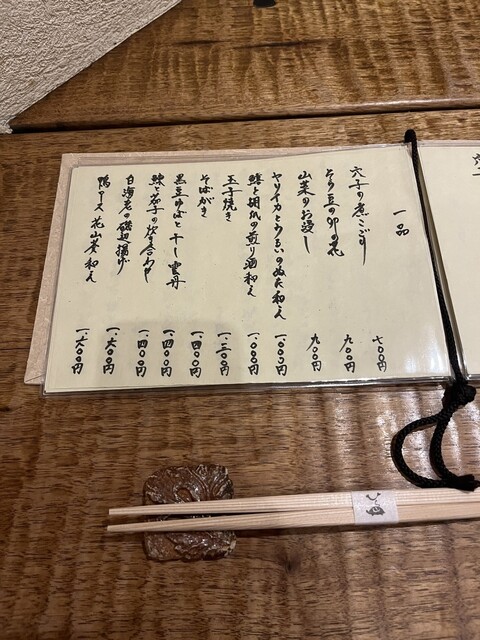 一品
穴子の煮こごり 七〇〇円
そら豆の卯の花 九〇〇円
山菜のお浸し 九〇〇円
ヤリイカとうるいのぬた和え 一、〇〇〇円
胡瓜の煎り酒和え 一、〇〇〇円
玉子焼き 一、三〇〇円
そばがき 一、四〇〇円
黒豆ゆばと干し雲丹 一、四〇〇円
鰊と茄子の炊き合わせ 一、四〇〇円
白海老の磯辺揚げ 一、六〇〇円
鴨ロース 花山葵和え 一、六〇〇円